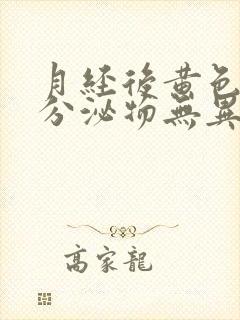 月経後黄色
分泌物無異
高家龍